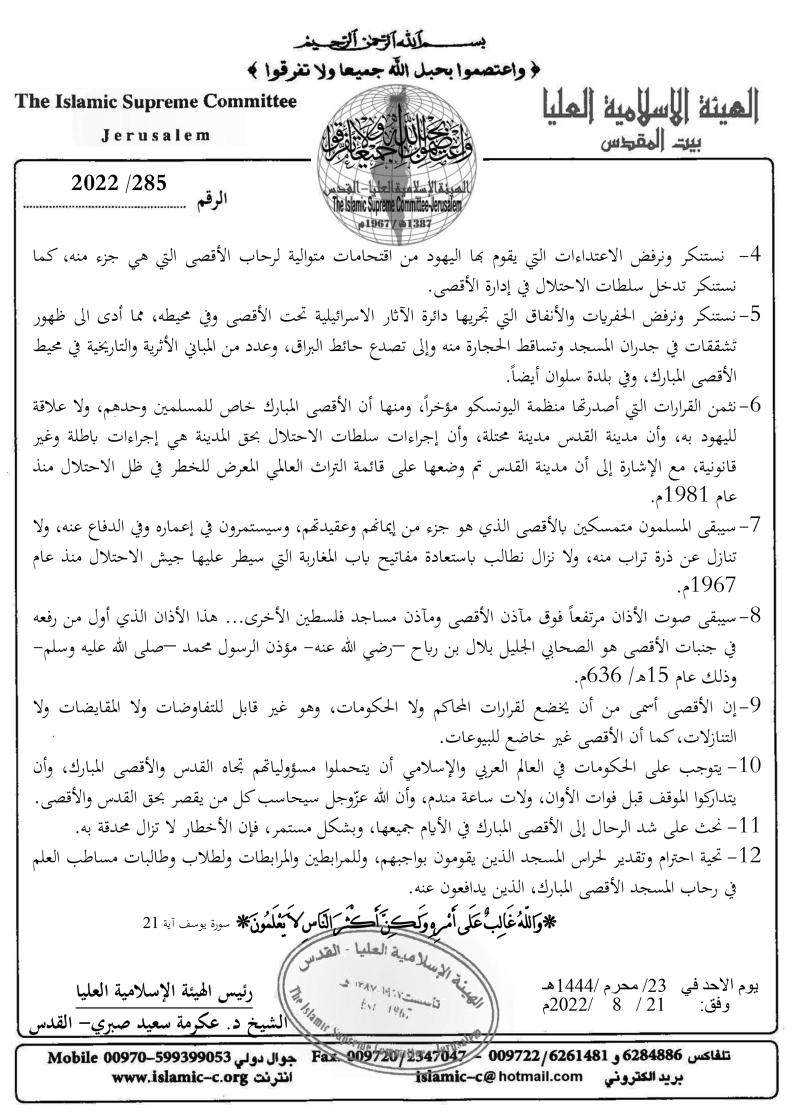 بسم الله الرحمن الرحيم
﴿ واعتصموا بحبل الله جميعا ولا تفرقوا ﴾
The Islamic Supreme Committee
الهيئة الاسلامية العليا
Jerusalem
بيت المقدس
واعتصموا بحبل الله جميعا ولا تفرقوا
الهيئة الإسلامية العليا - القدس
The Islamic Supreme Committee-Jerusalem
1387هـ/1967م
الرقم 285/ 2022
4- نستنكر ونرفض الاعتداءات التي يقوم بها اليهود من اقتحامات متوالية لرحاب الأقصى التي هي جزء منه، كما
نستنكر تدخل سلطات الاحتلال في إدارة الأقصى.
5- نستنكر ونرفض الحفريات والأنفاق التي تجريها دائرة الآثار الاسرائيلية تحت الأقصى وفي محيطه، مما أدى الى ظهور
تشققات في جدران المسجد وتساقط الحجارة منه وإلى تصدع حائط البراق، وعدد من المباني الأثرية والتاريخية في محيط
الأقصى المبارك، وفي بلدة سلوان أيضاً.
6- نثمن القرارات التي أصدرتها منظمة اليونسكو مؤخراً، ومنها أن الأقصى المبارك خاص للمسلمين وحدهم، ولا علاقة
لليهود به، وأن مدينة القدس مدينة محتلة، وأن إجراءات سلطات الاحتلال بحق المدينة هي إجراءات باطلة وغير
قانونية، مع الإشارة إلى أن مدينة القدس تم وضعها على قائمة التراث العالمي المعرض للخطر في ظل الاحتلال منذ
عام 1981م.
7- سيبقى المسلمون متمسكين بالأقصى الذي هو جزء من إيمانهم وعقيدتهم، وسيستمرون في إعماره وفي الدفاع عنه، ولا
تنازل عن ذرة تراب منه، ولا نزال نطالب باستعادة مفاتيح باب المغاربة التي سيطر عليها جيش الاحتلال منذ عام
1967م.
8- سيبقى صوت الأذان مرتفعاً فوق مآذن الأقصى ومآذن مساجد فلسطين الأخرى... هذا الأذان الذي أول من رفعه
في جنبات الأقصى هو الصحابي الجليل بلال بن رباح –رضي الله عنه- مؤذن الرسول محمد –صلى الله عليه وسلم-
وذلك عام 15هـ/ 636م.
9- إن الأقصى أسمى من أن يخضع لقرارات المحاكم ولا الحكومات، وهو غير قابل للتفاوضات ولا المقايضات ولا
التنازلات، كما أن الأقصى غير خاضع للبيوعات.
10- يتوجب على الحكومات في العالم العربي والإسلامي أن يتحملوا مسؤولياتهم تجاه القدس والأقصى المبارك، وأن
يتداركوا الموقف قبل فوات الأوان، ولات ساعة مندم، وأن الله عزّوجل سيحاسب كل من يقصر بحق القدس والأقصى.
11- نحث على شد الرحال إلى الأقصى المبارك في الأيام جميعها، وبشكل مستمر، فإن الأخطار لا تزال محدقة به.
12- تحية احترام وتقدير لحراس المسجد الذين يقومون بواجبهم، وللمرابطين والمرابطات ولطلاب وطالبات مساطب العلم
في رحاب المسجد الأقصى المبارك، الذين يدافعون عنه.
*والله غالب على أمره ولكن أكثر الناس لا يعلمون* سورة يوسف آية 21
الهيئة الإسلامية العليا - القدس
تأسست 1387هـ
1967
The Islamic Supreme Committee - Jerusalem
يوم الاحد في 23/ محرم /1444هـ
وفق: 21 / 8 /2022م
رئيس الهيئة الإسلامية العليا
الشيخ د. عكرمة سعيد صبري- القدس
تلفاكس 6284886 و 009722/6261481 - 009720/2347047 Fax. جوال دولي 00970-599399053 Mobile
بريد الكتروني islamic-c@hotmail.com انترنت www.islamic-c.org